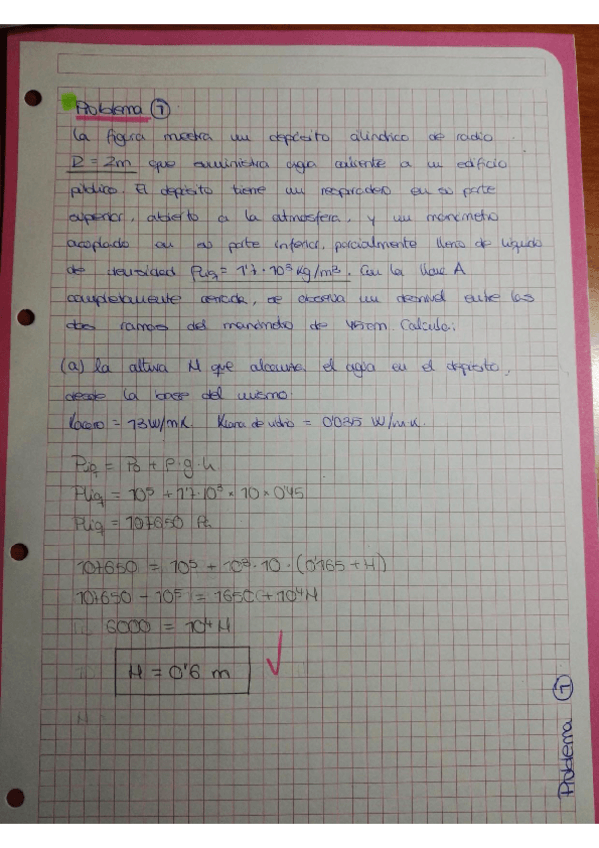 Problema 7
La figura muestra un depósito cilíndrico de radio
R = 2m que suministra agua caliente a un edificio
público. El depósito tiene un respiradero en su parte
superior, abierto a la atmósfera, y un manómetro
acoplado en su parte inferior, parcialmente lleno de líquido
de densidad ρliq = 1'7·10³ kg/m³. Con la llave A
completamente cerrada, se observa un desnivel entre las
dos ramas del manómetro de 45cm. Calcula:
(a) la altura H que alcanza el agua en el depósito,
desde la base del mismo.
Kacero = 13 W/mK. Klana de vidrio = 0'035 W/mK.
Pliq = P0 + ρ·g·h
Pliq = 10⁵ + 1'7·10³ × 10 × 0'45
Pliq = 107650 Pa
107650 = 10⁵ + 10³·10·(0'165+H)
107650 - 10⁵ = 1650 + 10⁴H
6000 = 10⁴ H
H = 0'6 m ✓
Problema 7